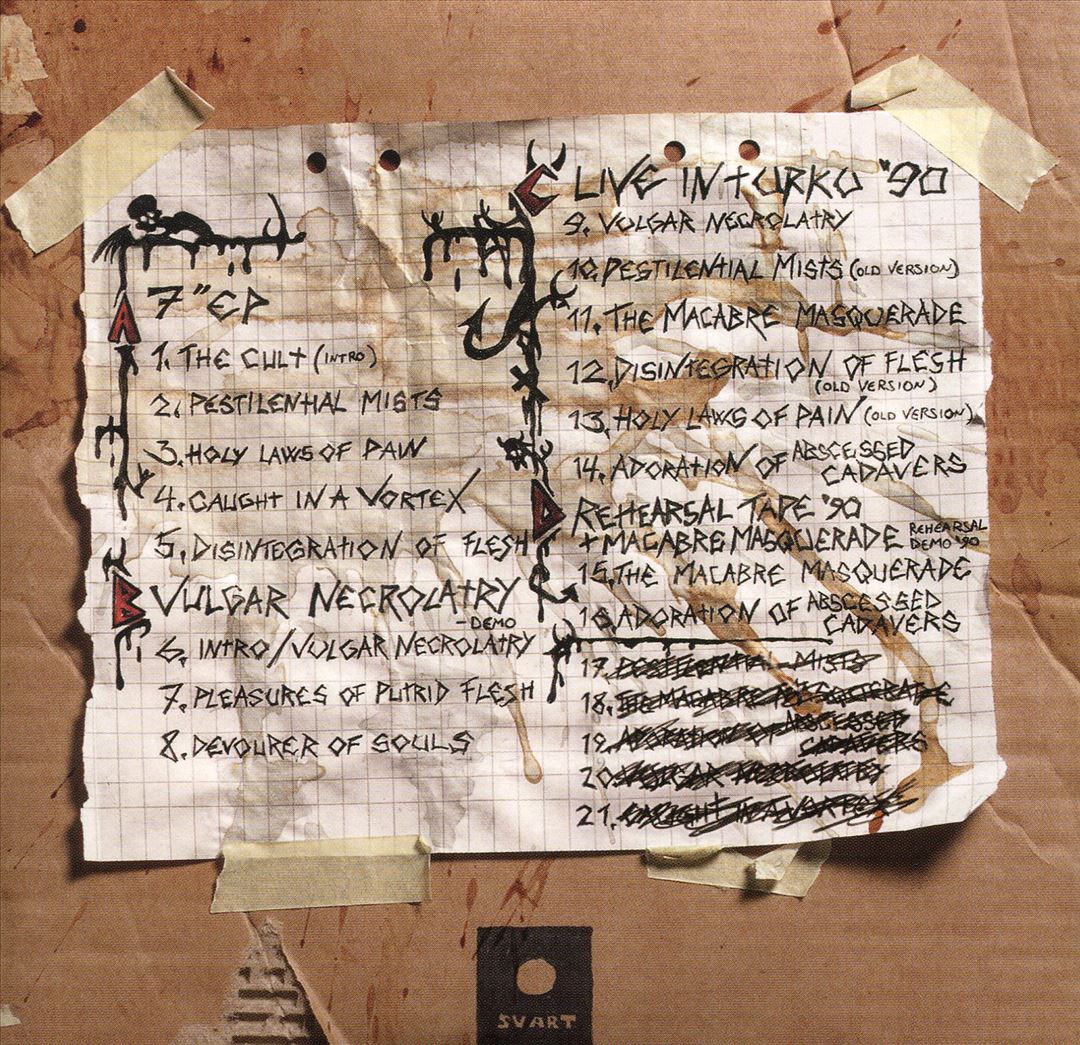 A
7" EP
1. THE CULT (INTRO)
2. PESTILENTIAL MISTS
3. HOLY LAWS OF PAIN
4. CAUGHT IN A VORTEX
5. DISINTEGRATION OF FLESH
B VULGAR NECROLATRY
-DEMO
6. INTRO/VULGAR NECROLATRY
7. PLEASURES OF PUTRID FLESH
8. DEVOURER OF SOULS
C LIVE IN TURKU '90
9. VULGAR NECROLATRY
10. PESTILENTIAL MISTS (OLD VERSION)
11. THE MACABRE MASQUERADE
12. DISINTEGRATION OF FLESH
(OLD VERSION)
13. HOLY LAWS OF PAIN (OLD VERSION)
14. ADORATION OF ABSCESSED
CADAVERS
D REHEARSAL TAPE '90
+ MACABRE MASQUERADE REHEARSAL
DEMO '90
15. THE MACABRE MASQUERADE
16. ADORATION OF ABSCESSED
CADAVERS
17. PESTILENTIAL MISTS
18. THE MACABRE MASQUERADE
19. ADORATION OF ABSCESSED
CADAVERS
20. VULGAR NECROLATRY
21. CAUGHT IN A VORTEX
SVART